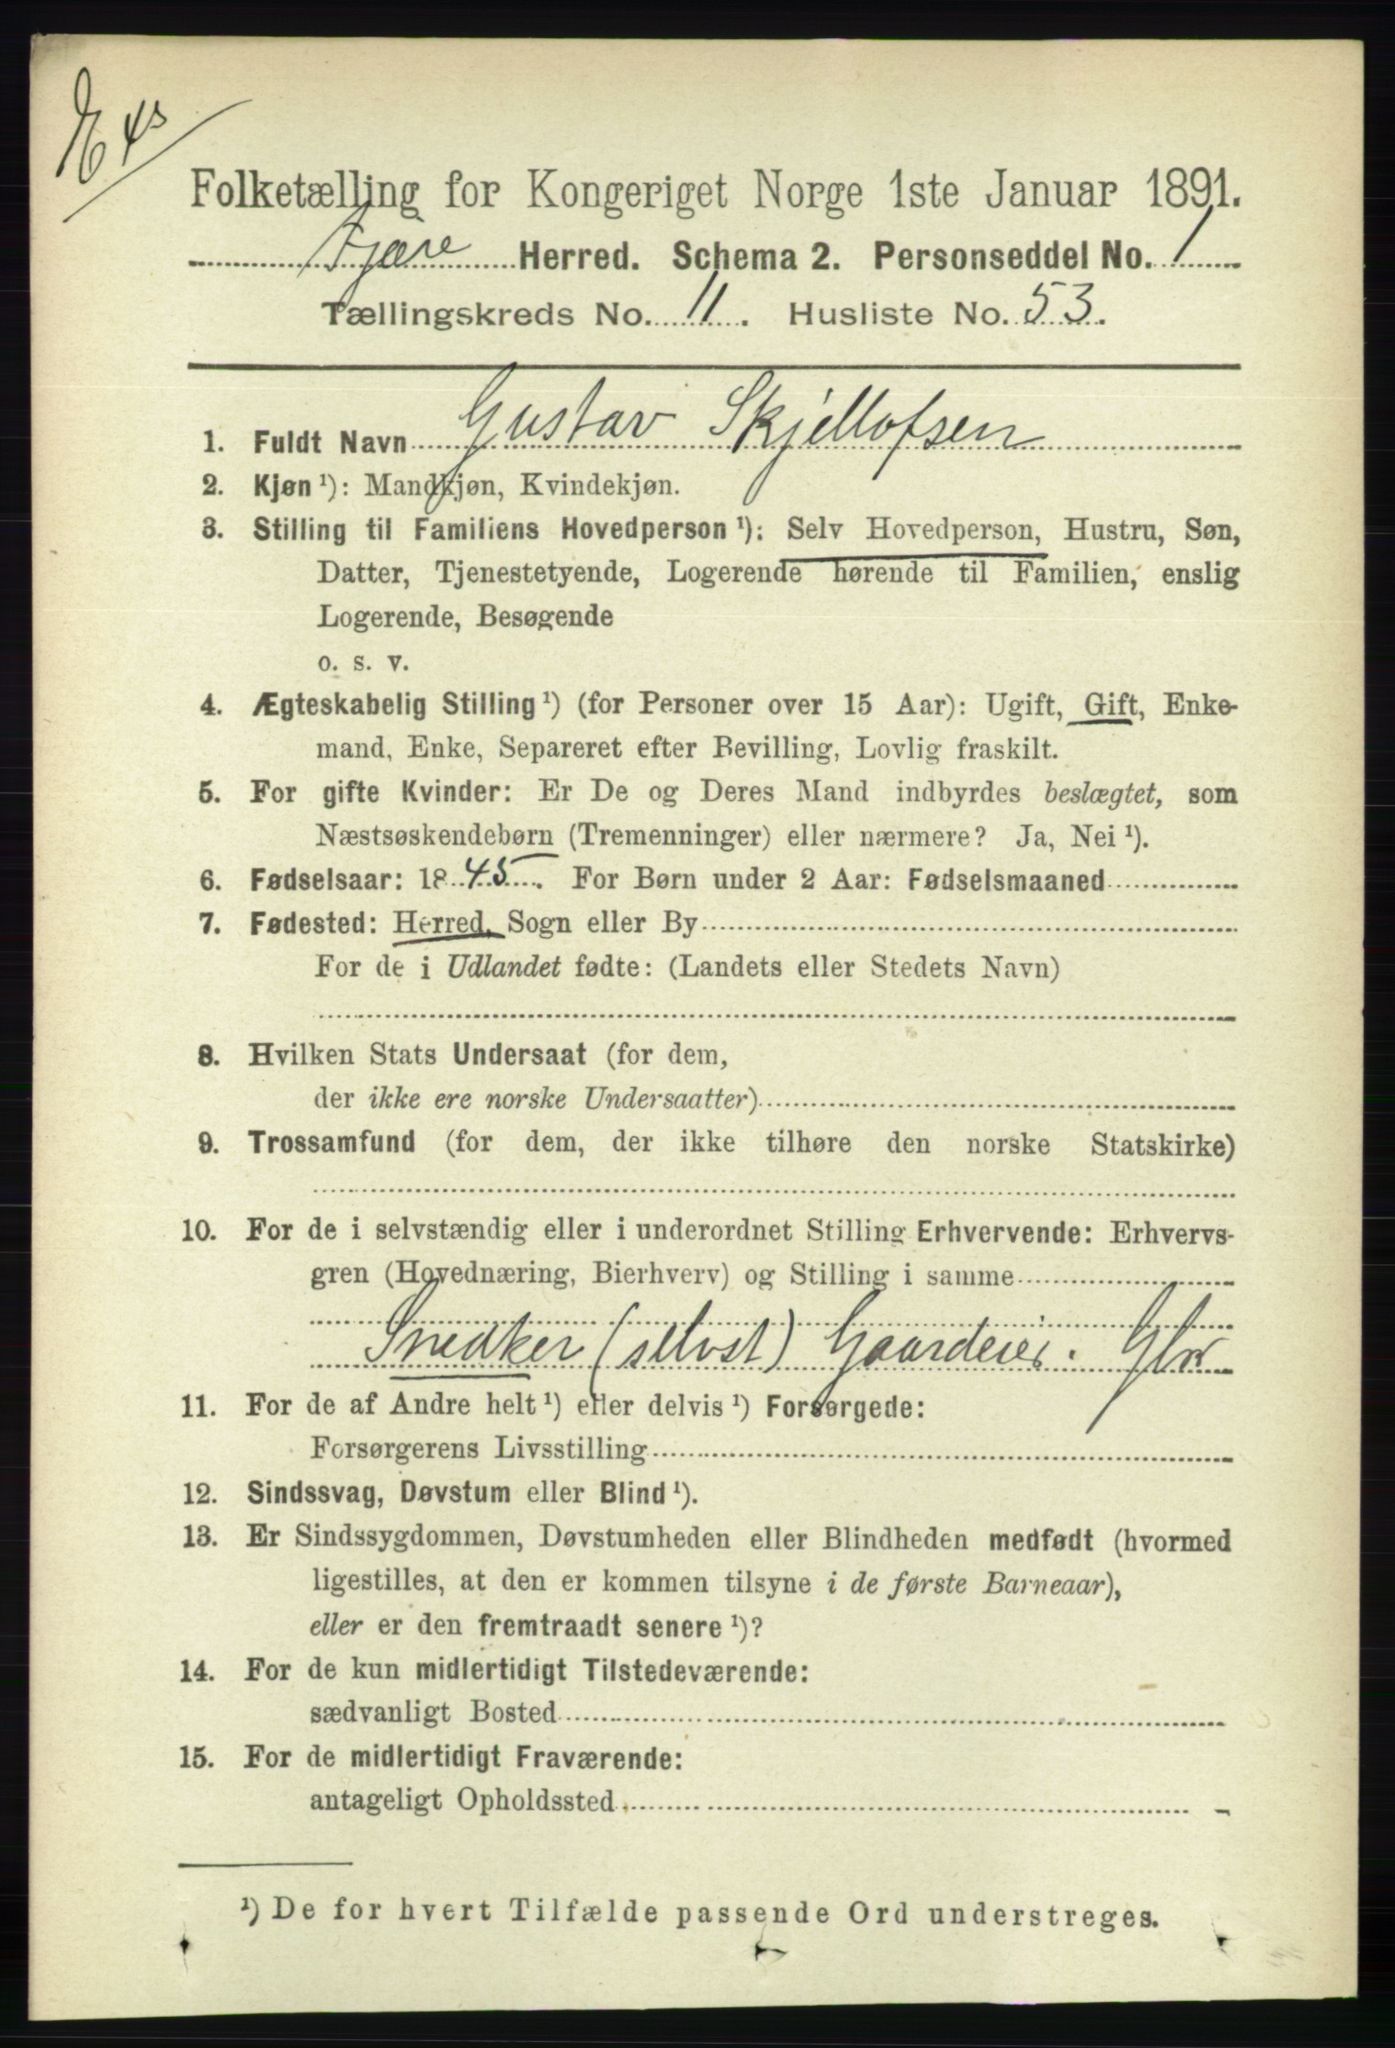 E 45
Folketælling for Kongeriget Norge 1ste Januar 1891.
Fjære Herred. Schema 2. Personseddel No. 1
Tællingskreds No. 11. Husliste No. 53.
1. Fuldt Navn Gustav Skjellofsen
2. Kjøn ¹): Mandkjøn, Kvindekjøn.
3. Stilling til Familiens Hovedperson ¹): Selv Hovedperson, Hustru, Søn,
Datter, Tjenestetyende, Logerende hørende til Familien, enslig
Logerende, Besøgende
o. s. v.
4. Ægteskabelig Stilling ¹) (for Personer over 15 Aar): Ugift, Gift, Enke-
mand, Enke, Separeret efter Bevilling, Lovlig fraskilt.
5. For gifte Kvinder: Er De og Deres Mand indbyrdes beslægtet, som
Næstsøskendebørn (Tremenninger) eller nærmere? Ja, Nei ¹).
6. Fødselsaar: 1845. For Børn under 2 Aar: Fødselsmaaned
7. Fødested: Herred, Sogn eller By
For de i Udlandet fødte: (Landets eller Stedets Navn)
8. Hvilken Stats Undersaat (for dem,
der ikke ere norske Undersaatter)
9. Trossamfund (for dem, der ikke tilhøre den norske Statskirke)
10. For de i selvstændig eller i underordnet Stilling Erhvervende: Erhvervs-
gren (Hovednæring, Bierhverv) og Stilling i samme
Snedker (selvst) Gaardeier.
11. For de af Andre helt ¹) eller delvis ¹) Forsørgede:
Forsørgerens Livsstilling
12. Sindssvag, Døvstum eller Blind ¹).
13. Er Sindssygdommen, Døvstumheden eller Blindheden medfødt (hvormed
ligestilles, at den er kommen tilsyne i de første Barneaar),
eller er den fremtraadt senere ¹)?
14. For de kun midlertidigt Tilstedeværende:
sædvanligt Bosted
15. For de midlertidigt Fraværende:
antageligt Opholdssted
¹) De for hvert Tilfælde passende Ord understreges.